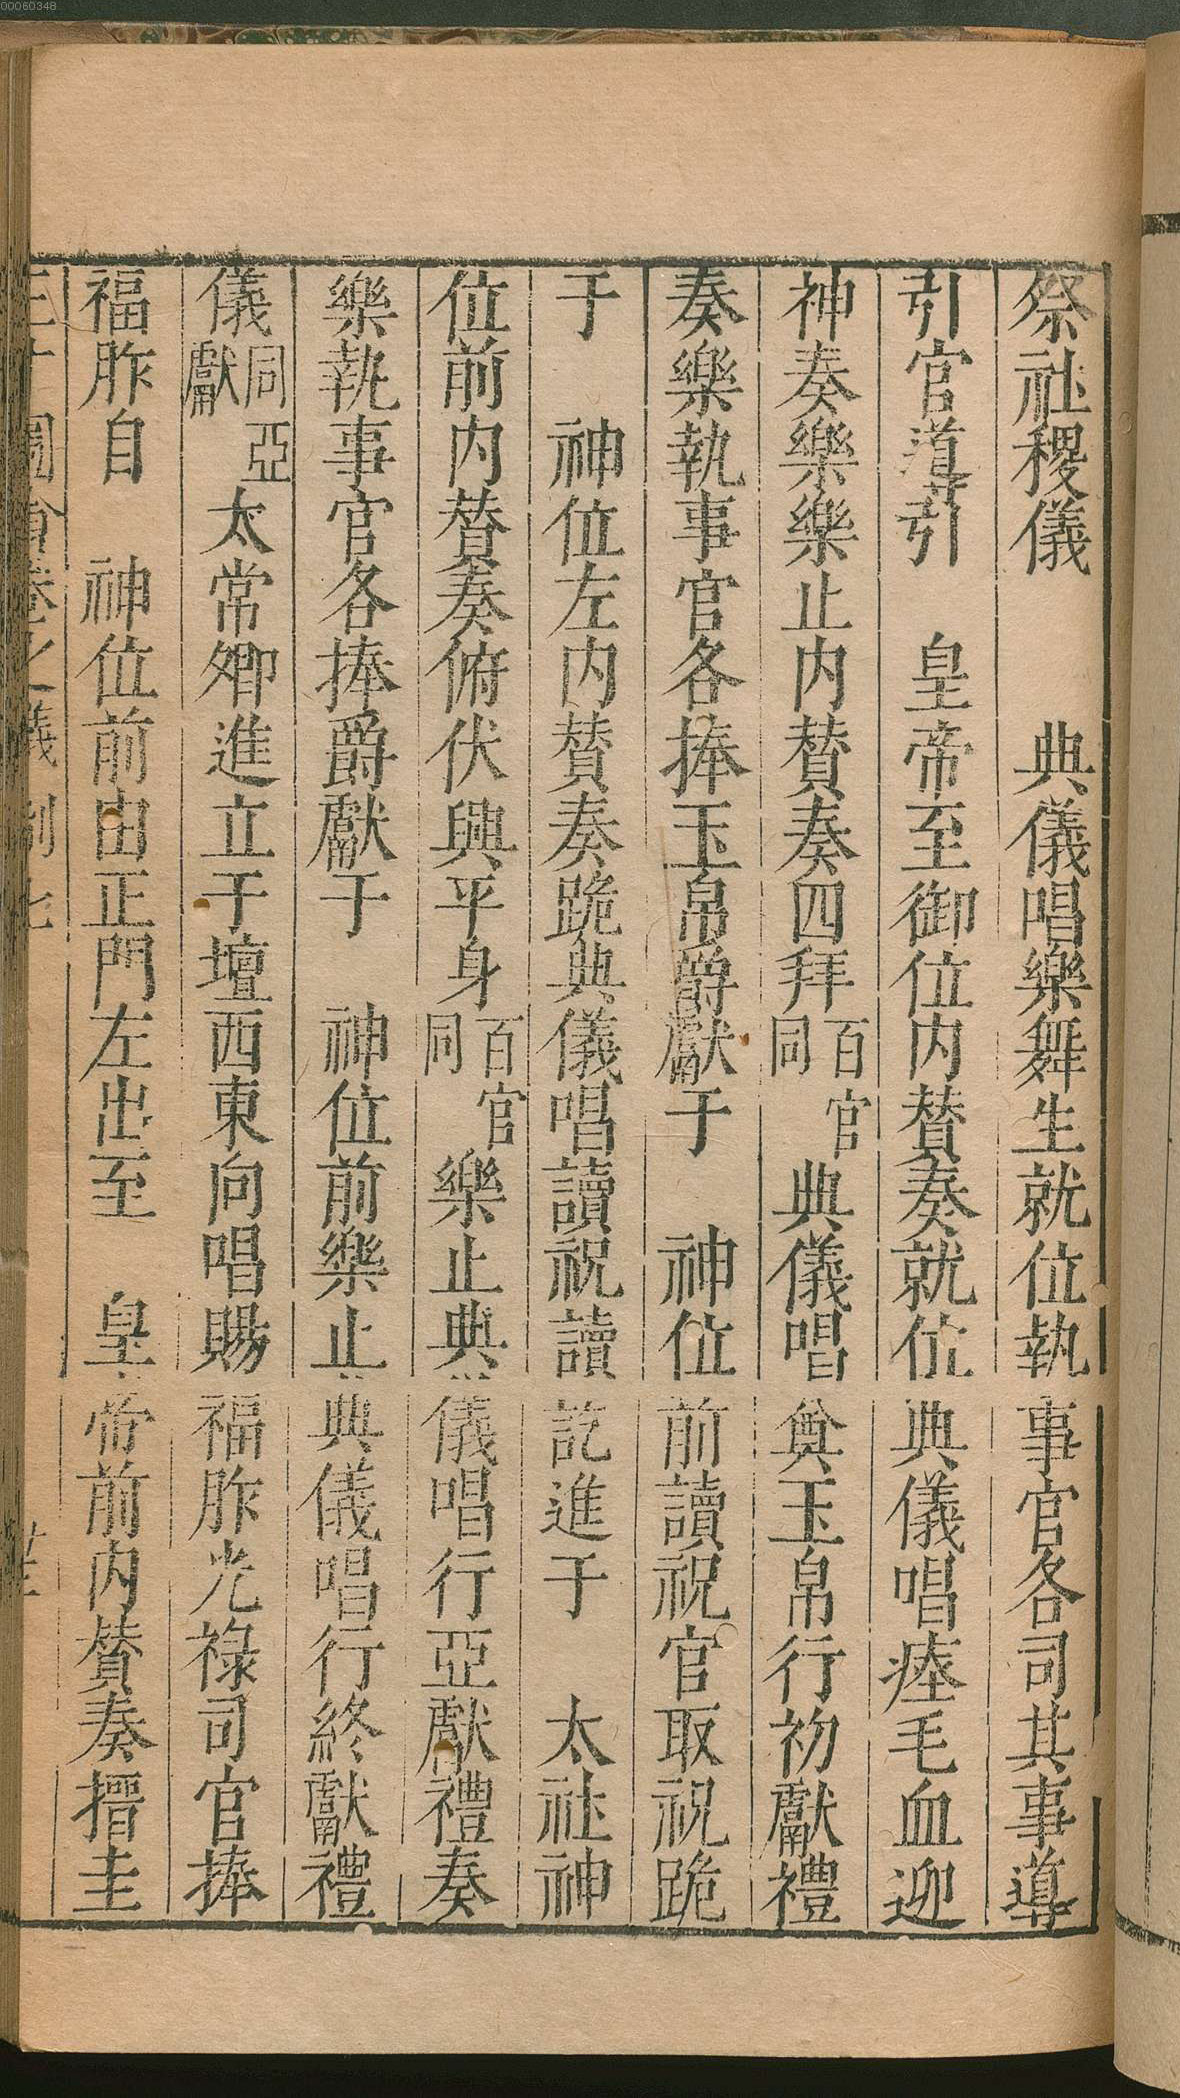 00060348
祭社稷儀　典儀唱樂舞生就位執事官各司其事導
引官導引　皇帝至御位内贊奏就位典儀唱瘞毛血迎
神奏樂樂止内贊奏四拜百官同典儀唱奠玉帛行初獻禮
奏樂執事官各捧玉帛爵獻于　神位前讀祝官取祝跪
于　神位左内贊奏跪典儀唱讀祝讀訖進于　太社神
位前内贊奏俯伏興平身百官同樂止典儀唱行亞獻禮奏
樂執事官各捧爵獻于　神位前樂止典儀唱行終獻禮
儀同亞獻太常卿進立于壇西東向唱賜福胙光禄司官捧
福胙自　神位前由正門左出至　皇帝前内贊奏搢圭
三才圖會卷之儀制七